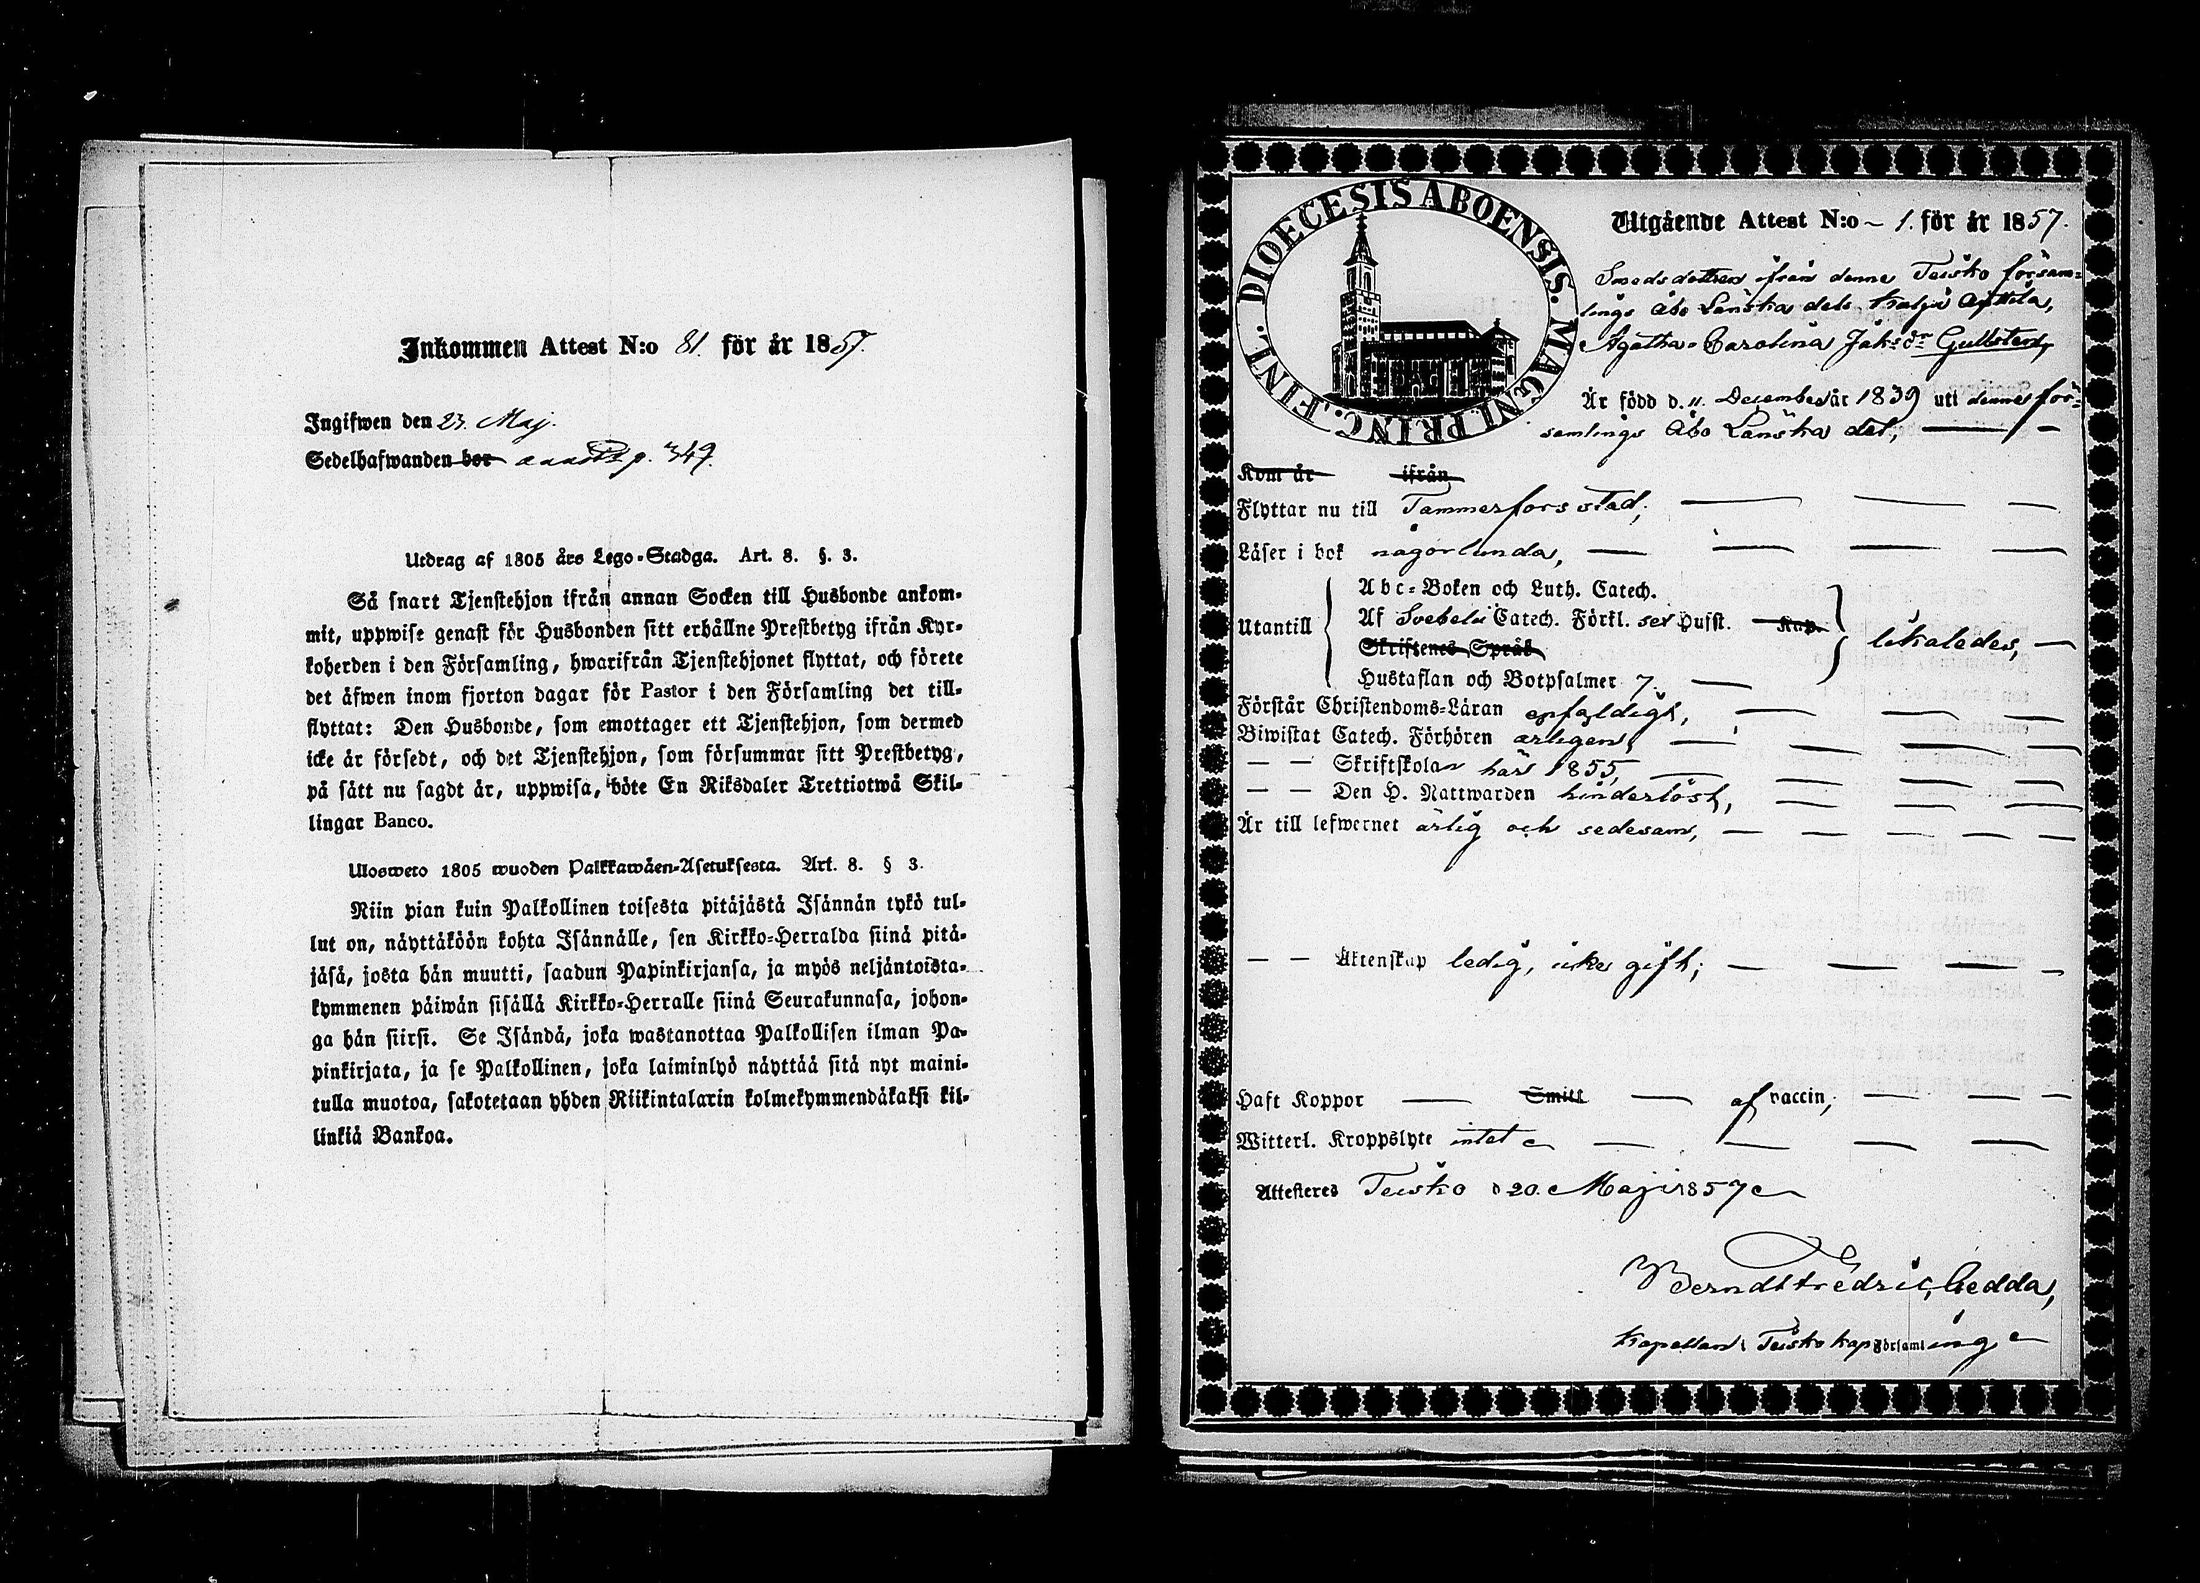 Inkommen Attest N:o 81. för år 1857.
Ingifwen den 23. Maj.
Sedelhafwanden bor p. 349.
Utdrag af 1805 års Lego-Stadga. Art. 8. §. 3.
Så snart Tjenstehjon ifrån annan Socken till Husbonde ankom-
mit, uppwise genast för Husbonden sitt erhållne Prestbetyg ifrån Kyr-
koherden i den Församling, hwarifrån Tjenstehjonet flyttat, och förete
det äfwen inom fjorton dagar för Pastor i den Församling det till-
flyttat: Den Husbonde, som emottager ett Tjenstehjon, som dermed
icke är försedt, och det Tjenstehjon, som försummar sitt Prestbetyg,
på sätt nu sagdt är, uppwisa, böte En Riksdaler Trettiotwå Skil-
lingar Banco.
Ulosweto 1805 wuoden Palkkawäen-Asetuksesta. Art. 8. § 3.
Niin pian kuin Palkollinen toisesta pitäjästä Isännän tykö tul-
lut on, näyttäköön kohta Isännälle, sen Kirkko-Herralda siinä pitä-
jäsä, josta hän muutti, saadun Papinkirjansa, ja myös neljäntoista-
kymmenen päiwän sisällä Kirkko-Herralle siinä Seurakunnasa, johon-
ga hän siirsi. Se Isändä, joka wastanottaa Palkollisen ilman Pa-
pinkirjata, ja se Palkollinen, joka laiminlyö näyttää sitä nyt maini-
tulla muotoa, sakotetaan yhden Riikintalarin kolmekymmendäkaksi kil-
linkiä Bankoa.
DIOECESIS ABOENSIS. MAGNI PRINC. FINL.
Utgående Attest N:o 1. för år 1857.
Smedsdottren ifrån denne Teisko försam-
lings Åbo Länska dels
Agatha Carolina Jaksdr Gullsten,
Är född d. 11. Decemberår 1839 uti dennes för-
samlings Åbo Länska del,
Kom år ifrån
Flyttar nu till Tammerfors stad,
Läser i bok någorlunda,
Utantill
Abc-Boken och Luth. Catech.
Af Svebelii Catech. Förkl. sex Hufst. Kap.
Skriftenes Språk
Hustaflan och Botpsalmer 7.
likaledes,
Förstår Christendoms-Läran enfaldigt,
Biwistat Catech. Förhören årligen,
— — Skriftskolan här 1855,
— — Den H. Nattwarden hinderlöst,
Är till lefwernet ärlig och sedesam,
— — Äktenskap ledig, icke gift;
Haft Koppor — Smitt — af vaccin;
Witterl. Kroppslyte intet
Attesteres Teisko d 20. Maji 1857
Berndt Fredric Gedda,
Kapellan i Teisko kapförsamling